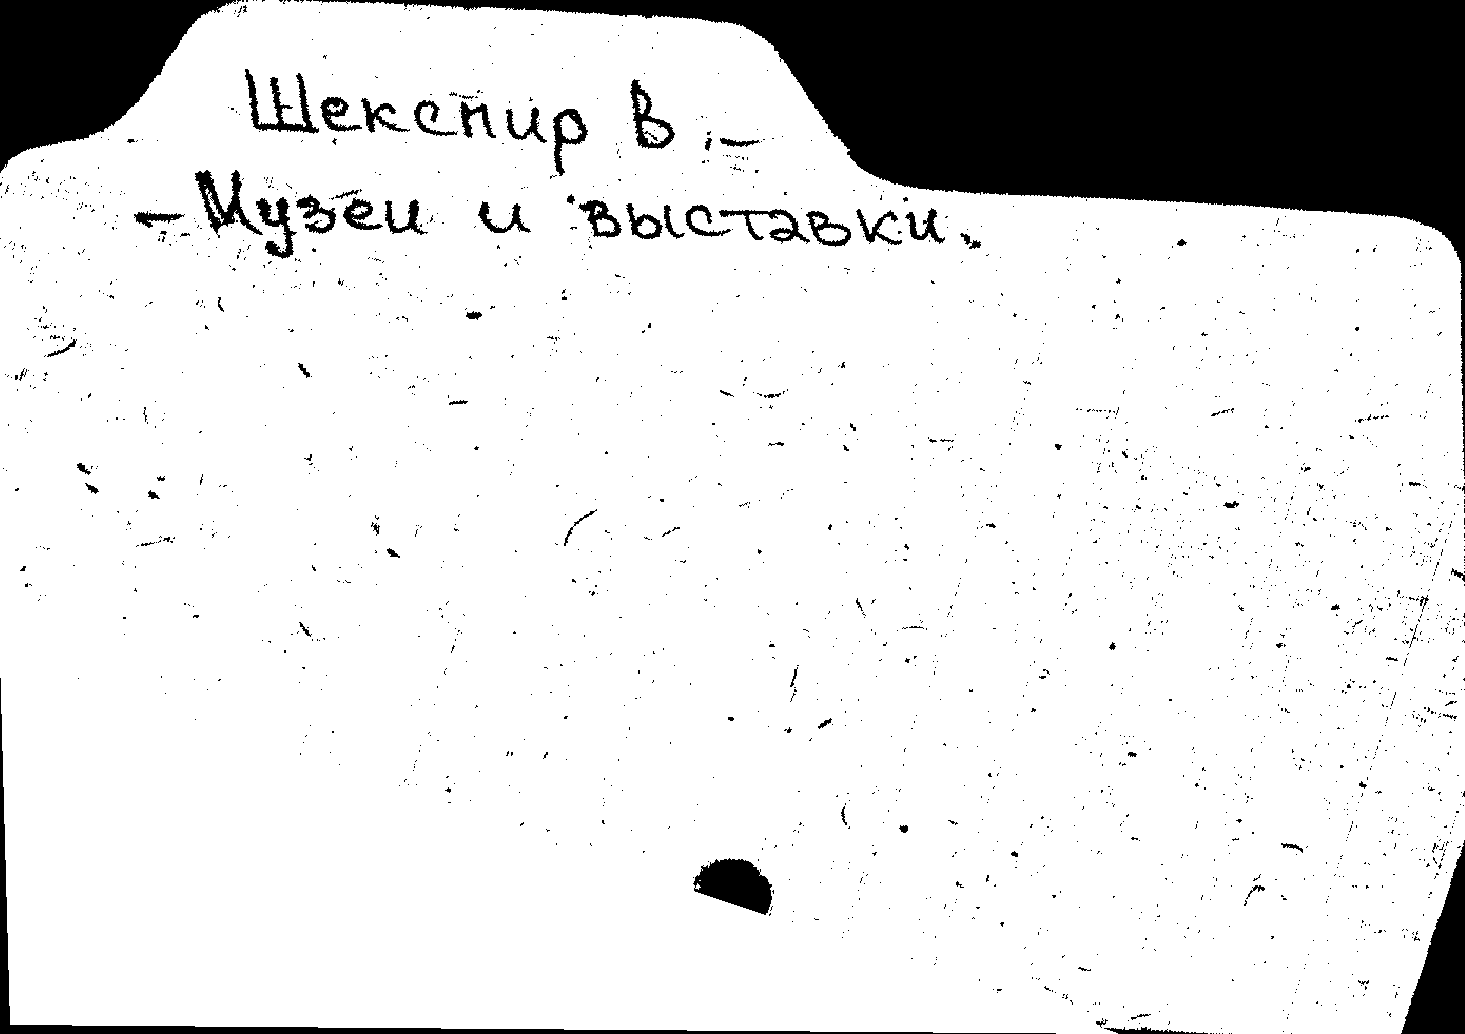 Шекспир В. –
– Музеи и выставки.